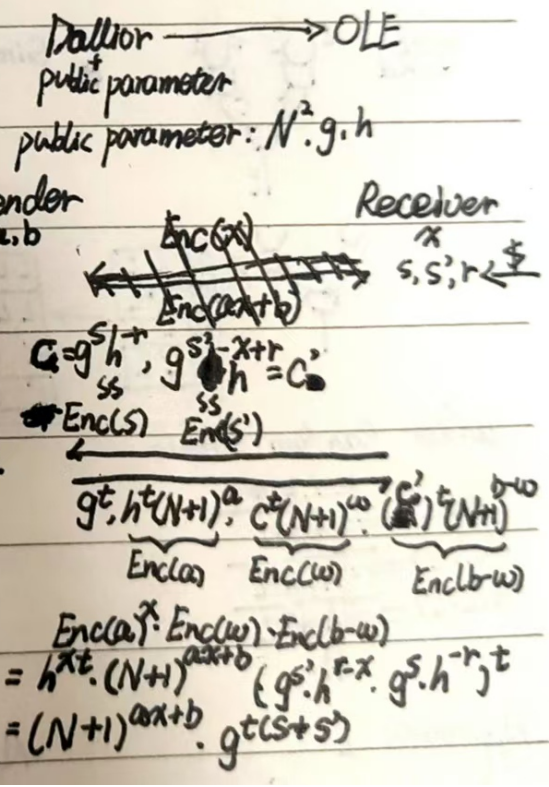 Dallior → OLE
+
public parameter
public parameter: N². g. h
ender Receiver
a, b x
Enc(x) s, s', r ← $
Enc(ax+b)
C = g^s h^-r, g^s' h^-x+r = C'
ss ss
Enc(s) Enc(s')
g^t, h^t(N+1)^a, C^t(N+1)^w. (C')^t(N+1)^b-w
Enc(a) Enc(w) Enc(b-w)
Enc(a)^x · Enc(w) · Enc(b-w)
= h^xt · (N+1)^ax+b (g^s' · h^r-x · g^s · h^-r)^t
= (N+1)^ax+b · g^t(s+s')